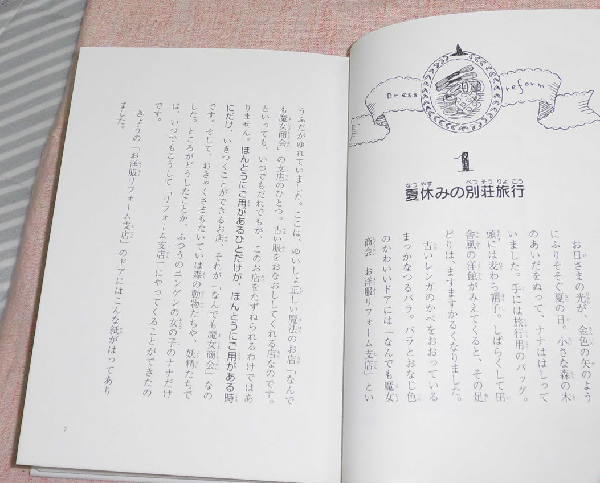 Dress reform
1
夏休みの別荘旅行
お日さまの光が、金色の矢のよう
にふりそそぐ夏の日。小さな森の木
のあいだをぬって、ナナははしって
いました。手には旅行用のバッグ。
頭には麦わら帽子。しばらくして田
舎風の洋館がみえてくると、その足
どりは、ますますかるくなりました。
古いレンガのかべをおおっている
まっかなつるバラ。バラとおなじ色
のかわいいドアには「なんでも魔女
商会 お洋服リフォーム支店」とい
うふだがゆれていました。ここは、ゆいしょ正しい魔法のお店「なんで
も魔女商会」の支店のひとつ。古い服をおなおししてくれる店なのです。
といっても、いつでもだれでもが、このお店をたずねられるわけではあ
りません。ほんとうにご用があるひとだけが、ほんとうにご用がある時
にだけ、いきつくことができるお店、それが「なんでも魔女商会」なの
です。そして、おきゃくさまもたいていは森の動物たちや、妖精たちで
した。ところがどうしたことか、ふつうのニンゲンの女の子のナナだけ
は、いつでもこうして「リフォーム支店」にやってくることができたの
です。
きょうの「お洋服リフォーム支店」のドアにはこんな紙がはってあり
ました。
7